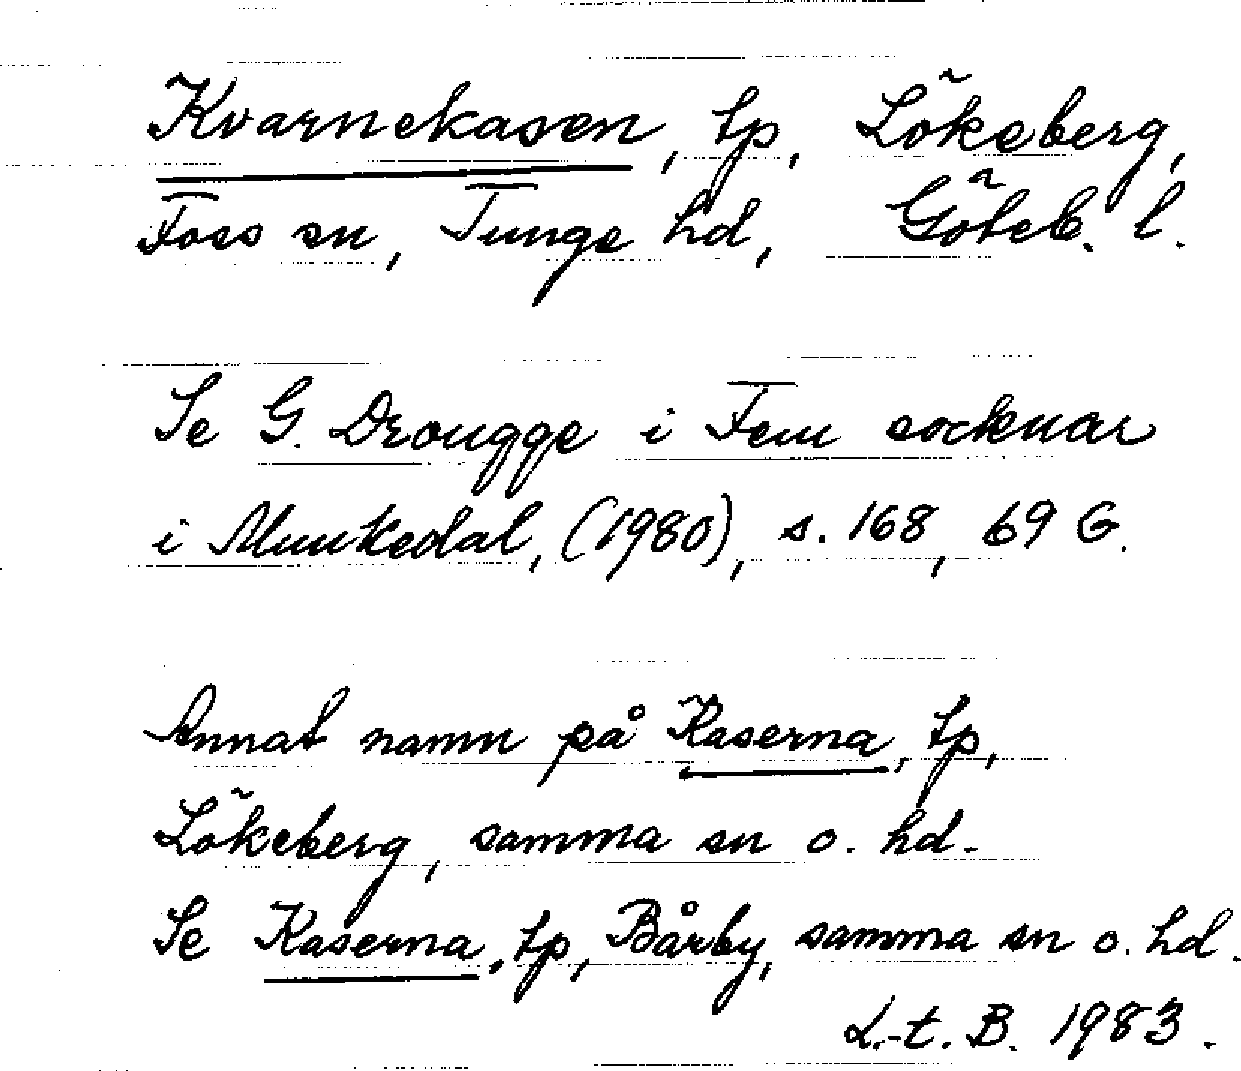 Kvarnekasen, tp, Lökeberg,
Foss sn, Tunge hd, Göteb. l.
Se G. Drougge i Fem socknar
i Munkedal, (1980), s. 168, 69 G.
Annat namn på Kaserna, tp,
Lökeberg, samma sn o. hd.
Se Kaserna, tp, Bårby, samma sn o. hd.
L.-t. B. 1983.